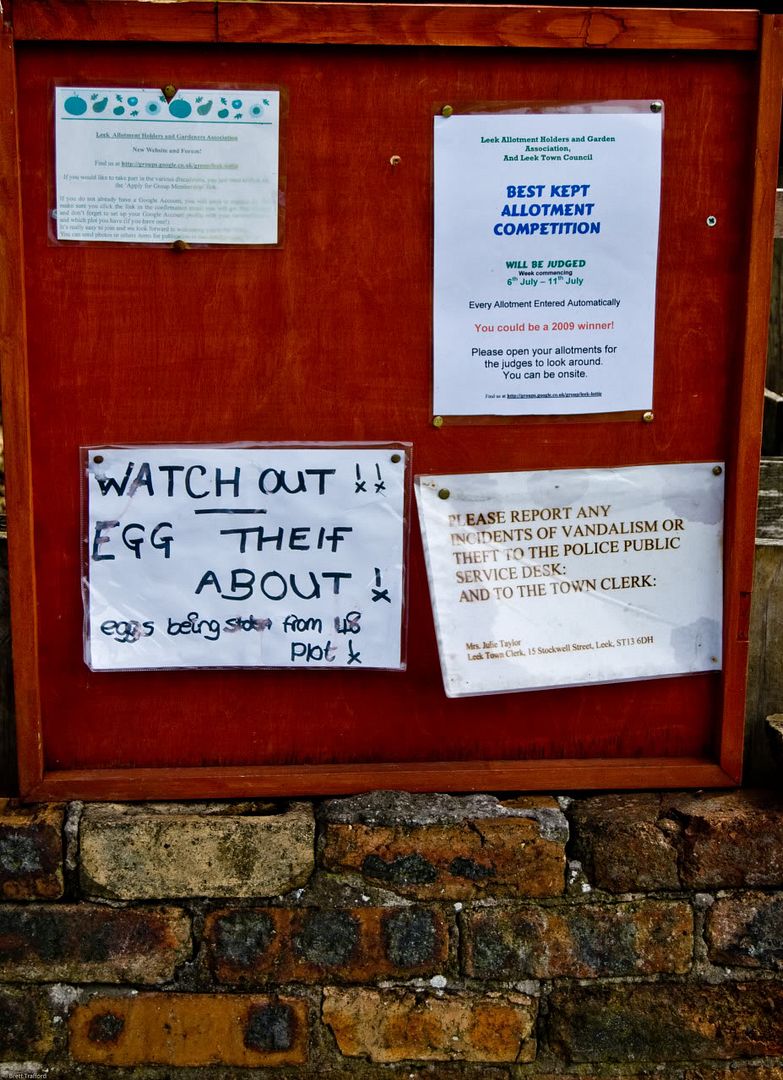 Leek Allotment Holders and Gardeners Association
New Website and Forum!
Find us at http://groups.google.co.uk/group/leek-lottie
If you would like to take part in the various discussions, you just need to click on
the 'Apply for Group Membership' link.
If you do not already have a Google Account, you will need to
make sure you click the link in the confirmation
and don't forget to set up your Google Account profile with your
and which plot you have (if you have one!)
It's really easy to join and we look forward to
You can send photos or others items for
Leek Allotment Holders and Garden
Association,
And Leek Town Council
BEST KEPT
ALLOTMENT
COMPETITION
WILL BE JUDGED
Week commencing
6th July – 11th July
Every Allotment Entered Automatically
You could be a 2009 winner!
Please open your allotments for
the judges to look around.
You can be onsite.
Find us at http://groups.google.co.uk/group/leek-lottie
WATCH OUT !!
EGG THEIF
ABOUT !
eggs being stolen from 48
Plot !
PLEASE REPORT ANY
INCIDENTS OF VANDALISM OR
THEFT TO THE POLICE PUBLIC
SERVICE DESK:
AND TO THE TOWN CLERK:
Mrs. Julie Taylor
Leek Town Clerk, 15 Stockwell Street, Leek, ST13 6DH
Brett Trafford